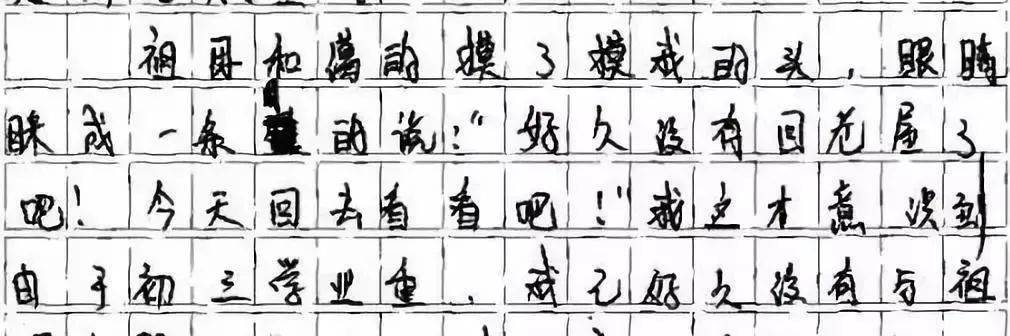 祖母和蔼的摸了摸我的头，眼睛
眯成一条的说：“好久没有回老屋了
吧！今天回去看看吧！”我这才意识到
由于初三学业重，我已好久没有与祖